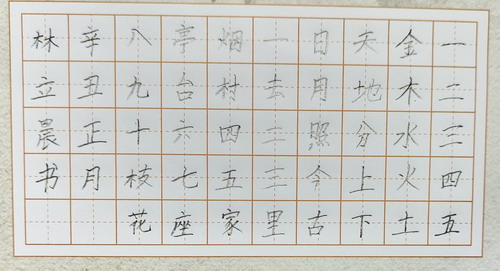 一二三四五
金木水火土
天地分上下
日月照今古
一去二三里
烟村四五家
亭台六七座
八九十枝花
辛丑正月
林立晨书